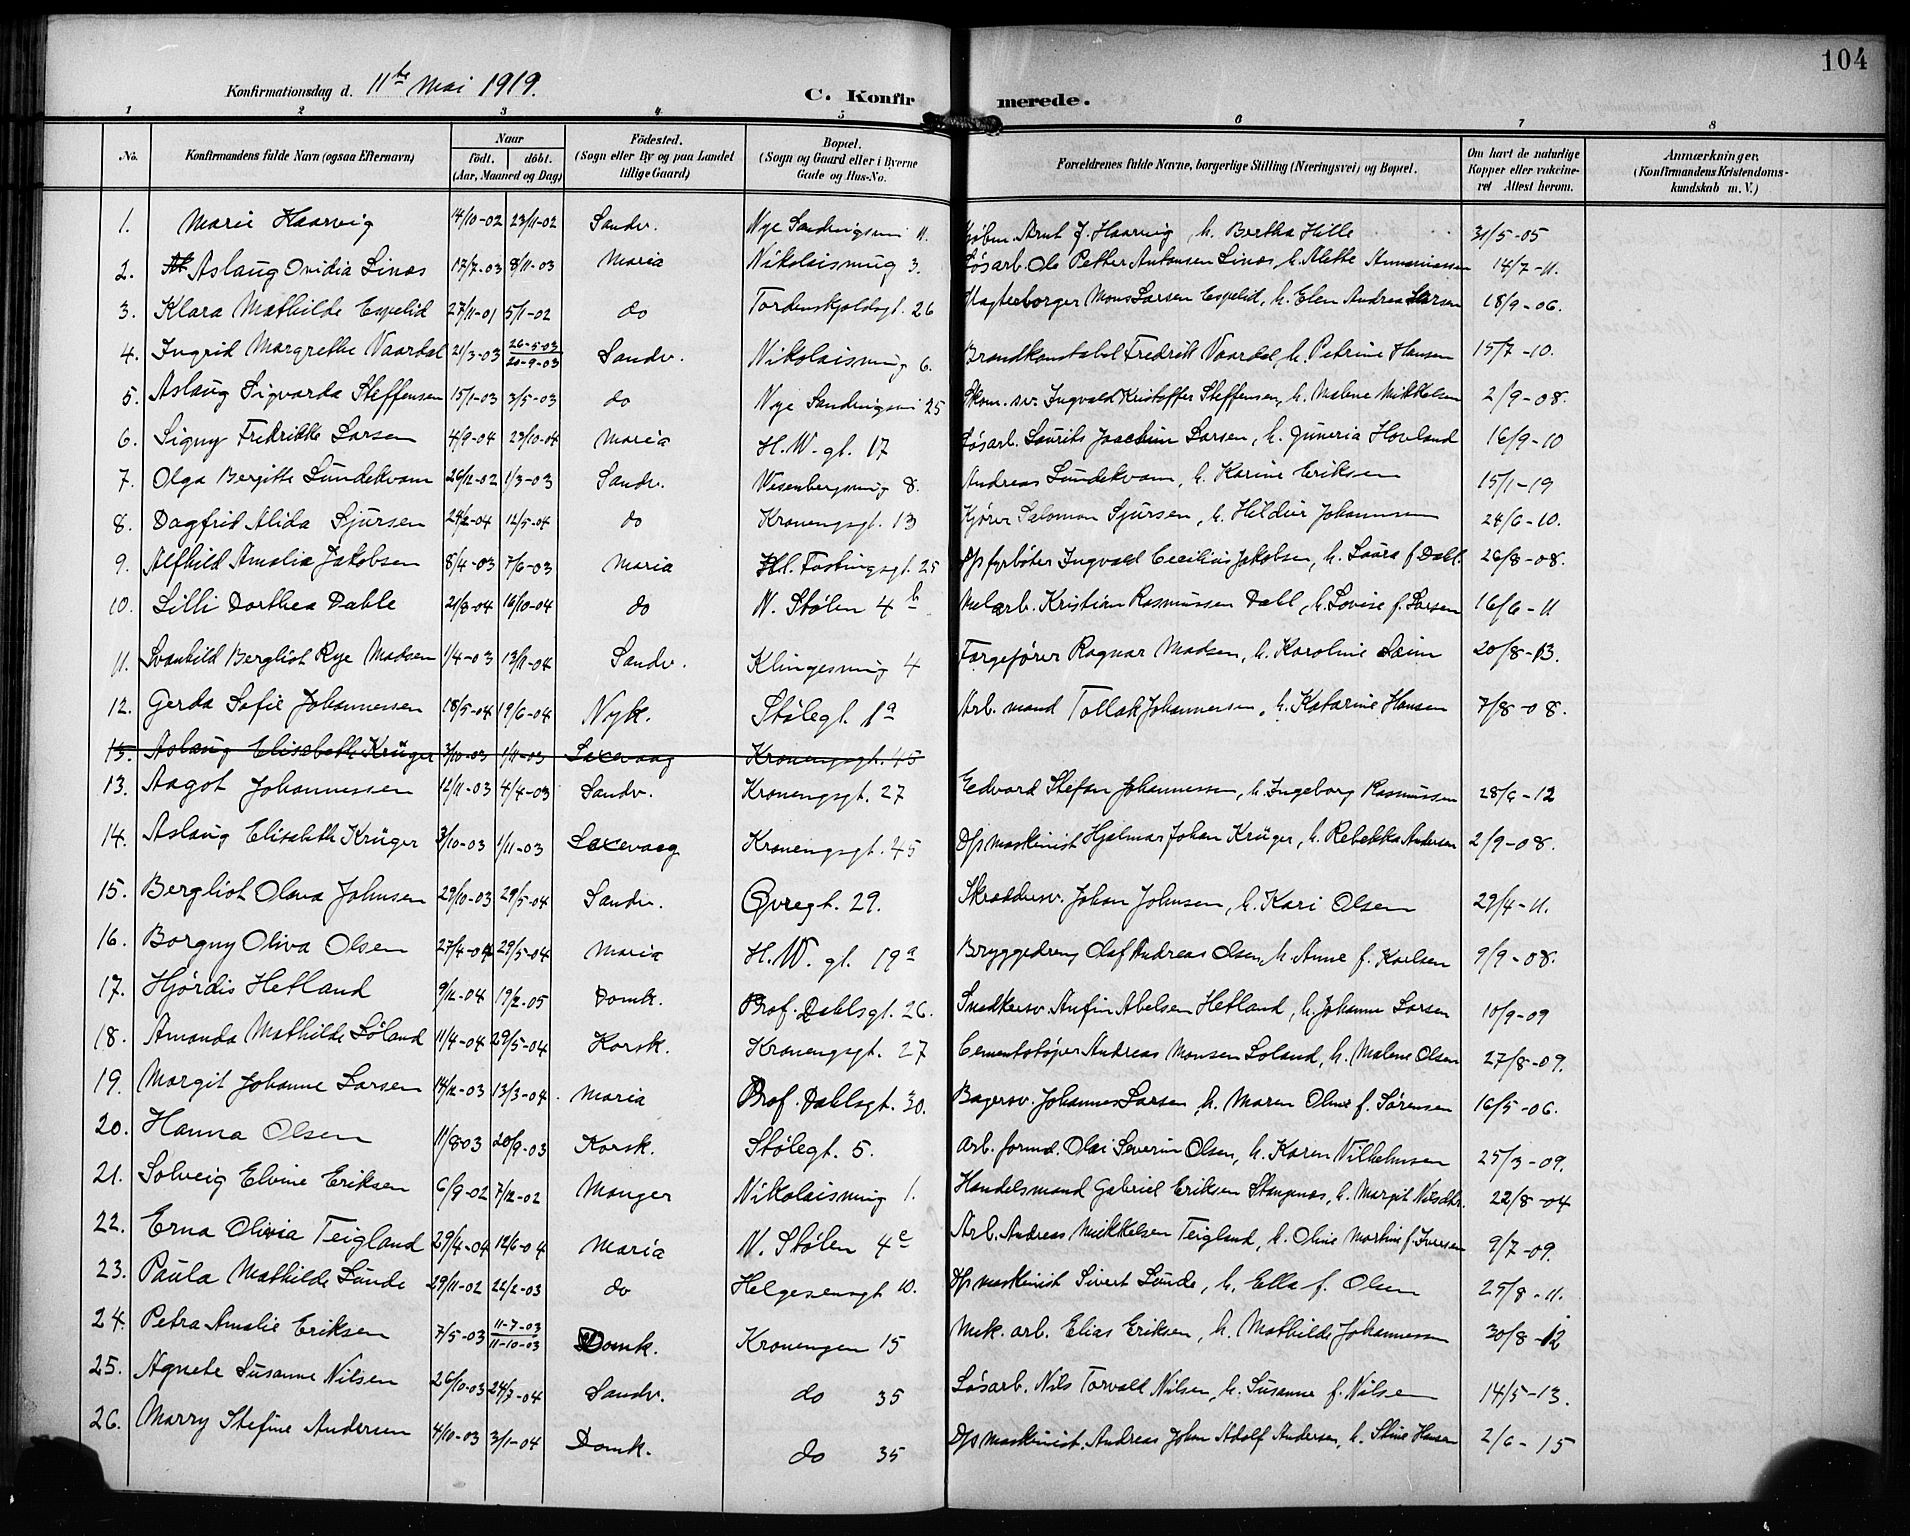 104
Konfirmationsdag d. 11te Mai 1919.
C. Konfirmerede.
1 2 3 4 5 6 7 8
No. Konfirmandens fulde Navn (ogsaa Efternavn) Naar födt. döbt. (Aar, Maaned og Dag) Födested. (Sogn eller By og paa Landet tillige Gaard) Bopæl. (Sogn og Gaard eller i Byerne Gade og Hus-No. Forældrenes fulde Navne, borgerlige Stilling (Næringsvei) og Bopæl. Om havt de naturlige Kopper eller vakcineret Attest herom. Anmærkninger. (Konfirmandens Kristendomskundskab m. V.)
1. Marie Haarvig 14/10-02 23/11-02 Sandv. Nye Sandvigsvei 11. Kjøbm. Arnt J. Haarvig, h. Bertha Hille 31/5-05
2. Aslaug Ovidia Linøs 17/7-03 8/11-03 Maria Nikolaismug 3. Løsarb. Ole Petter Antonsen Linøs, h. Alette 14/7-11.
3. Klara Mathilde Espelid 27/11-01 5/1-02 do Tordenskjoldsgt. 26 Mons Larsen Espelid, h. Elen Andrea Larsen 18/9-06.
4. Ingrid Margrethe Vaardal 21/3-03 26-5-03 20-9-03 Sandv. Nikolaismug 6. Brandkonstabel Fredrik Vaardal, h. Petrine Hansen 15/7-10.
5. Aslaug Sigvarda Steffensen 15/1-03 3/5-03 do Nye Sandvigsvei 25 Skom. sv. Ingvald Kristoffer Steffensen, h. Malene Mikkelsen 2/9-08.
6. Signy Fredrikke Larsen 4/9-04 23/10-04 Maria H. W. gt. 17 Løsarb. Laurits Joachim Larsen, h. Juneria Hovland 16/9-10
7. Olga Bergitte Lundekvam 26/12-02 1/3-03 Sandv. Wesenbergsmug 8. Andreas Lundekvam, h. Karine Eriksen 15/1-19
8. Dagfrid Alida Sjursen 24/2-04 12/5-04 do Kronengsgt. 13 Kjører Salomon Sjursen, h. Hildur Johannesen 24/6-10.
9. Alfhild Amalia Jakobsen 8/4-03 7/6-03 Maria Hl. Fastingsgt. 25 D/s fyrbøter Ingvald Cecilius Jakobsen, h. Laura f. Dahl. 26/8-08.
10. Lilli Dorthea Dahle 21/8-04 16/10-04 do N. Stølen 4b Melarb. Kristian Rasmussen Dahl, h. Lovise f. Larsen 16/6-11
11. Svanhild Bergliot Rye Madsen 1/4-03 13/11-04 Sandv. Klingesmug 4 Færgefører Ragnar Madsen, h. Karoline Laim 20/8-13.
12. Gerda Sofie Johannesen 18/5-04 19/6-04 Nyk. Stølegt. 1a Arb. mand Tollak Johannesen, h. Katarine Hansen 7/8-08.
13. Aslaug Elisabeth Krüger 3/10-03 1/11-03 Laxevaag Kronengsgt. 45
13. Aagot Johannessen 12/11-03 4/4-03 Sandv. Kronengsgt. 27 Edvard Stefan Johannessen, h. Ingeborg Rasmussen 28/6-12
14. Aslaug Elisabeth Krüger 3/10-03 1/11-03 Laxevaag Kronengsgt. 45 D/s maskinist Hjalmar Johan Krüger, h. Rebekka Andersen 2/9-08.
15. Bergliot Olava Johnsen 29/10-03 29/5-04 Sandv. Øvregt. 29. Skræddersv. Johan Johnsen, h. Kari Olsen 29/4-11.
16. Borgny Oliva Olsen 27/4-04 29/5-04 Maria H. W. gt. 19a Bryggedreng Olaf Andreas Olsen, h. Anne f. Karlsen 9/9-08.
17. Hjørdis Hetland 9/12-04 19/2-05 Domk. Prof. Dahlsgt. 26. Snedkersv. Anfin Abelsen Hetland, h. Johanne Larsen 10/9-09
18. Amanda Mathilde Søland 11/4-04 29/5-04 Korsk. Kronengsgt. 27 Cementstøper Andreas Monsen Søland, h. Malene Olsen 27/8-09.
19. Margit Johanne Larsen 14/12-03 13/3-04. Maria Prof. Dahlsgt. 30. Bagersv. Johannes Larsen, h. Maren Oline f. Sørensen 16/5-06.
20. Hanna Olsen 11/8-03 20/9-03 Korsk. Stølegt. 5. Arb. formd. Olai Severin Olsen, h. Karen Vilhelmsen 25/3-09.
21. Solveig Elvine Eriksen 6/9-02 7/12-02 Manger Nikolaismug 1. Handelsmand Gabriel Eriksen Stangnøs, h. Margit Nilsdtr. 22/8-04
22. Erna Olivia Teigland 29/4-04 12/6-04 Maria N. Stølen 4c Arb. Andreas Mikkelsen Teigland, h. Oline Martine f. Iversen 9/7-09.
23. Paula Mathilde Lunde 29/11-02 22/2-03 do Helgesensgt 10. D/s maskinist Sivert Lunde, h. Ella f. Olsen 25/8-11.
24. Petra Amalie Eriksen 7/5-03 11-7-03 11-10-03 Domk. Kronengen 15 Mek. arb. Elias Eriksen, h. Mathilde Johannessen 30/8-12
25. Agnete Susanne Nilsen 26/10-03 24/7-04 Sandv. do 35 Løsarb. Nils Torvald Nilsen, h. Susanne f. Nilsen 14/5-13.
26. Marry Stefine Andersen 4/10-03 3/1-04 Domk. do 35 D/s maskinist. Andreas John Adolf Andersen, h. Stine Hansen 2/6-15